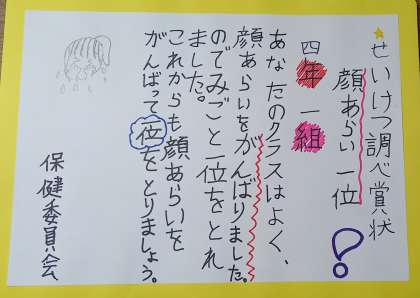 せいけつ調べ賞状
顔あらい一位
四年一組
あなたのクラスはよく、
顔あらいをがんばりました。
のでみごと一位をとれ
ました。
これからも顔あらいを
がんばって一位をとりましょう。
保健委員会